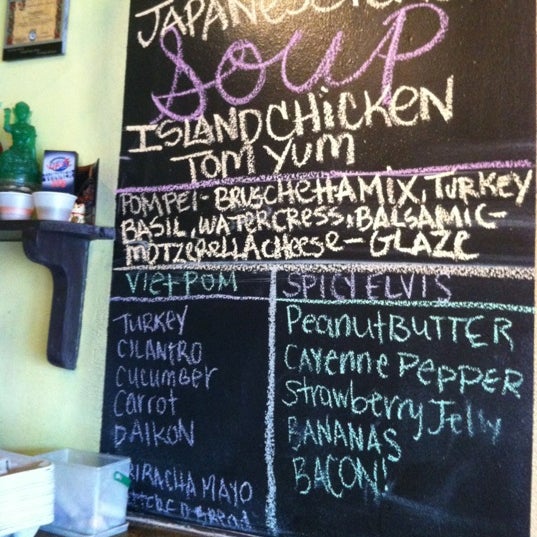 SOUP
ISLAND CHICKEN
TOM YUM
POMPEI - BRUSCHETTA MIX, TURKEY
BASIL, WATERCRESS, BALSAMIC-
MOTZERELLA CHEESE - GLAZE
VIETPOM
TURKEY
CILANTRO
CUCUMBER
CARROT
DAIKON
SRIRACHA MAYO
SPICY ELVIS
PEANUT BUTTER
CAYENNE PEPPER
STRAWBERRY JELLY
BANANAS
BACON!